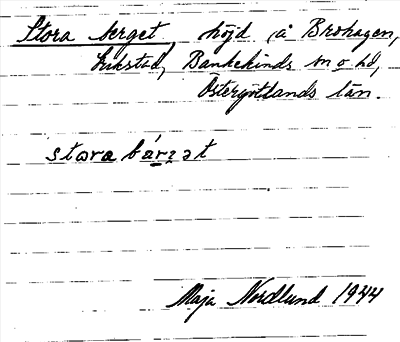 Stora berget, höjd å Brohagen,
Lukstad, Bankekinds sn o hd,
Östergötlands län.
stɷra bárʒət
Maja Nordlund 1944